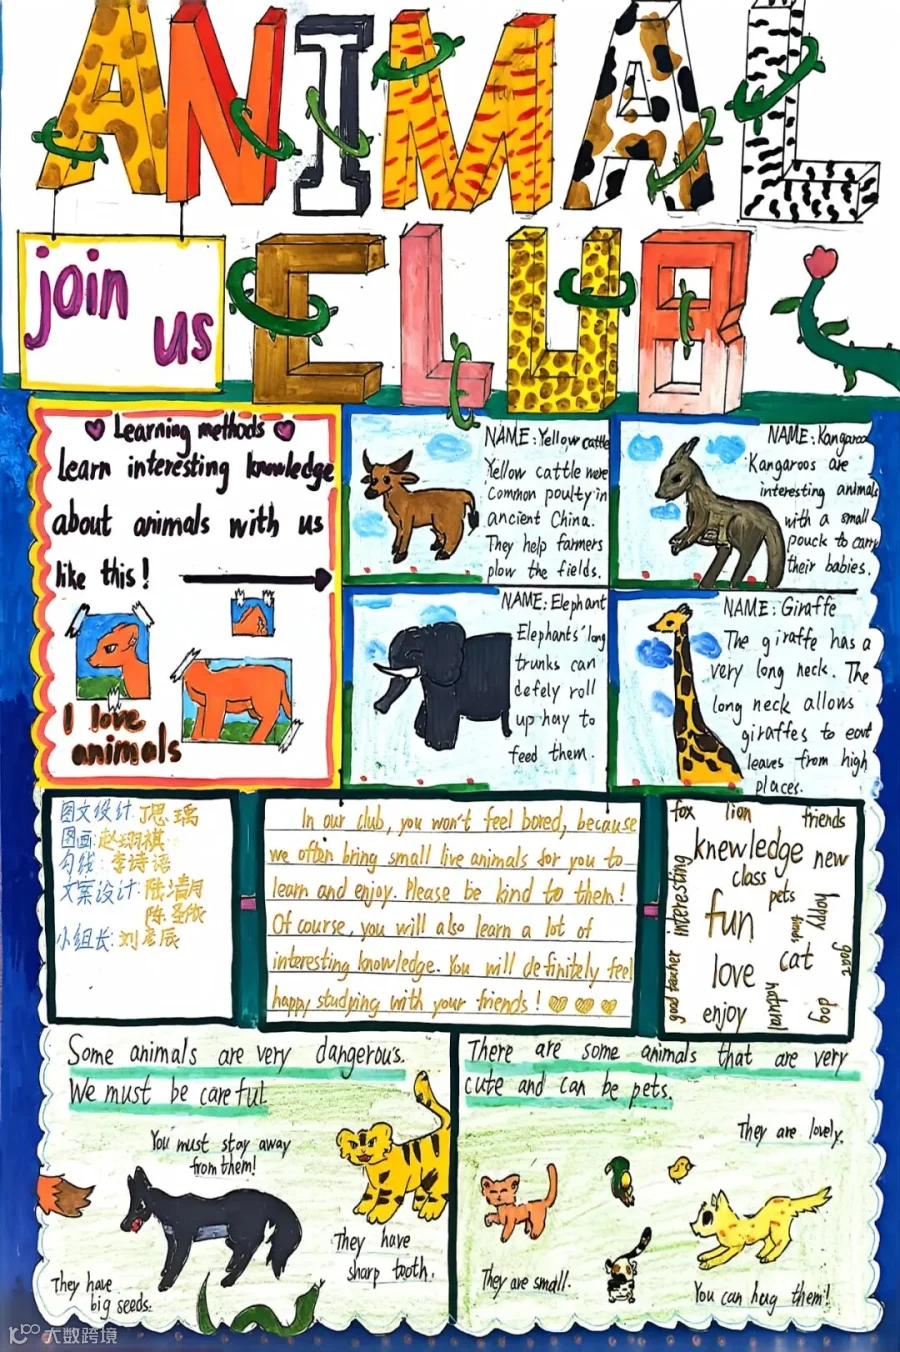 ANIMAL
CLUB
join
us
Learning methods
Learn interesting knowledge
about animals with us
like this!
I love
animals
NAME: Yellow cattle
Yellow cattle were
common poulty in
ancient China.
They help farmers
plow the fields.
NAME: Kangaroo
Kangaroos are
interesting animals
with a small
pouck to carry
their babies.
NAME: Elephant
Elephants' long
trunks can
defely roll
up hay to
feed them.
NAME: Giraffe
The giraffe has a
very long neck. The
long neck allows
giraffes to eat
leaves from high
places.
图文设计:
图画:
勾线: 李诗语
文案设计:
小组长:
In our club, you won't feel bored, because
we often bring small live animals for you to
learn and enjoy. Please be kind to them!
Of course, you will also learn a lot of
interesting knowledge. You will definitely feel
happy studying with your friends!
fox lion friends
knowledge new
interesting class pets
fun happy
love cat goat
good teacher enjoy natural dog
Some animals are very dangerous.
We must be careful.
You must stay away
from them!
They have
sharp tooth.
They have
big seeds.
There are some animals that are very
cute and can be pets.
They are lovely.
They are small.
You can hug them!
大数跨境